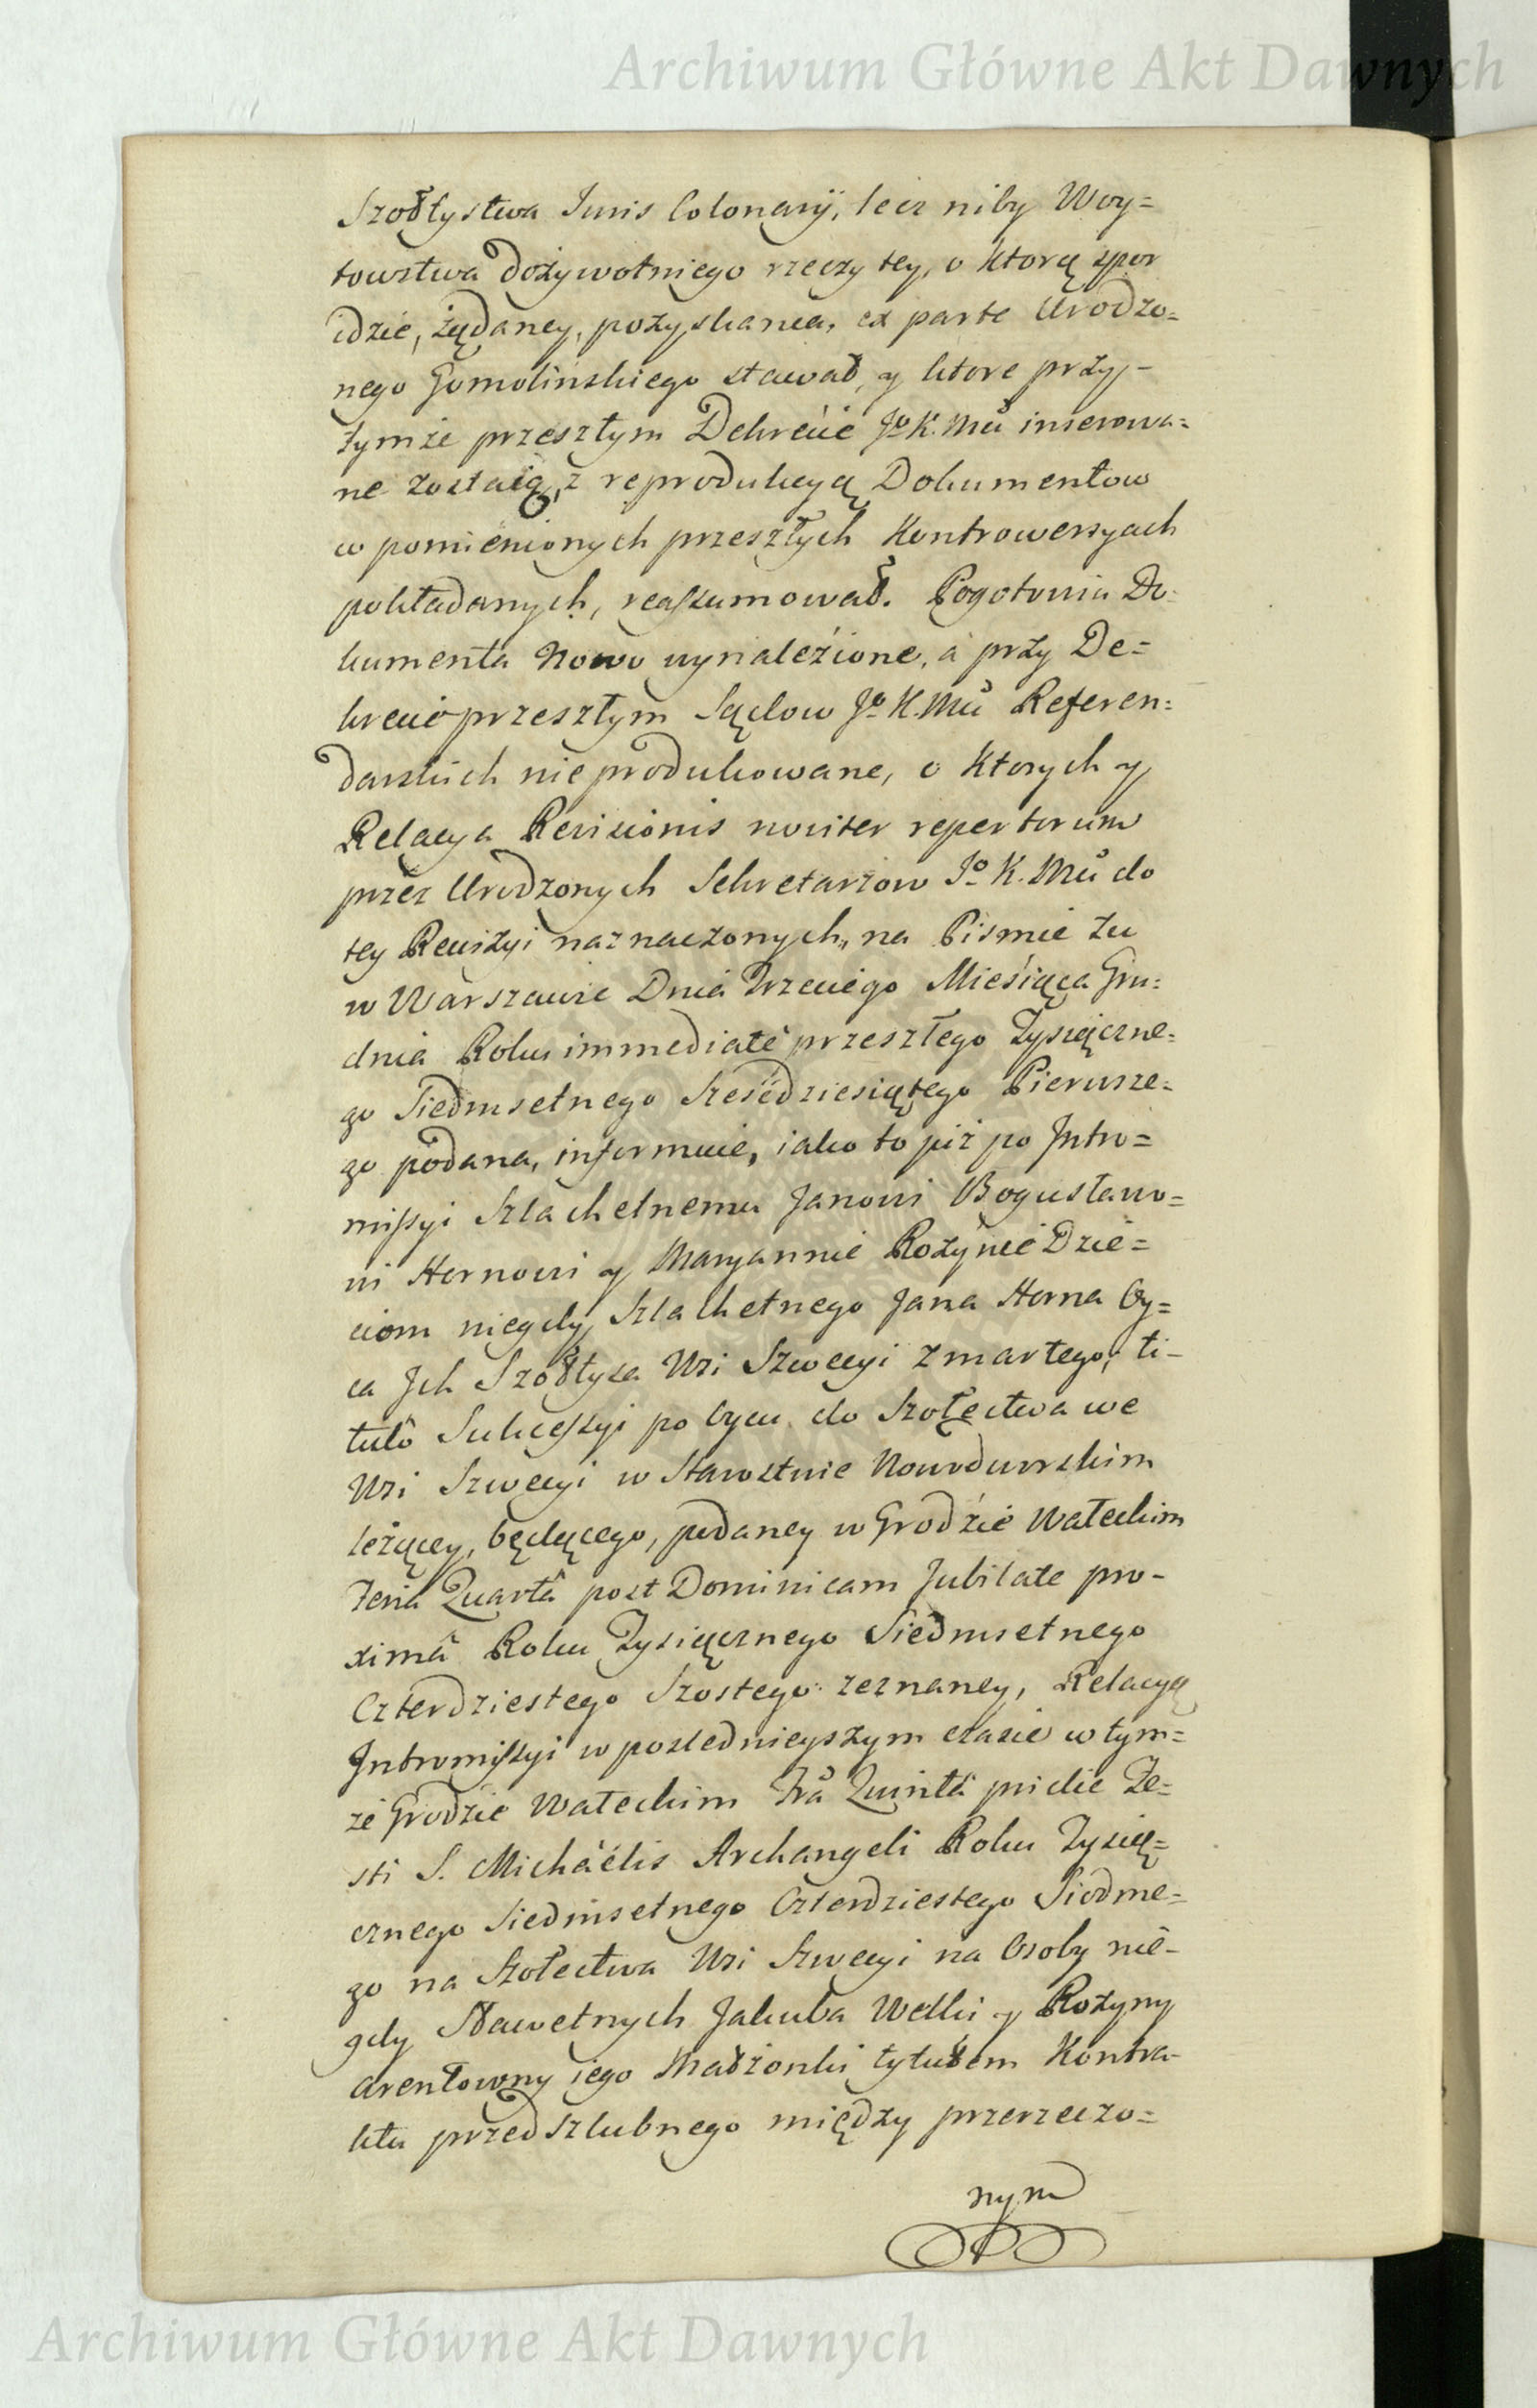 Archiwum Główne Akt Dawnych
Szołtystwa Juris Colonarÿ, lecz niby Woy=
towstwa dożywotniego rzeczy tey, o ktorą spor
idzie, żądaney, pozyskania, ex parte Urodzo=
nego Gomolinskiego stawał, y ktore przy-
tymże przeszłym Dekrecie Jo K. Mći inserowa=
ne zostaią, z reprodukcyą Dokumentow
w pomienionych przeszłych Kontrowersyach
pokładanych, reassumował. Pogotowiu Do=
kumenta Nowo wynaleźione, á przy De=
krecie przeszłym Sądow Jo K. Mći Referen=
darskich nie produkowane, o Ktorych y
Relacya Revisionis noviter repertorum
przez Urodzonych Sekretarzow Jo K. Mći do
tey Rewizyi naznaczonych, na Pismie tu
w Warszawie Dnia Trzeciego Mieśiąca Gru=
dnia Roku immediatè przeszłego Tysiączne=
go Siedmsetnego Sześćdziesiątego Pierwsze=
go podana, informuie, iako to już po Intro=
missyi Szlachetnemu Janowi Bogusławo=
wi Hornowi y Maryannie Rożynie Dzie=
ciom niegdy Szlachetnego Jana Horna Oy=
ca Jch Szołtysa Wsi Szwecyi zmarłego, ti-
tulô Sukcessyi po Oycu do Szołectwa we
Wsi Szwecyi w Starostwie Nowodworskim
leżącey, będącego, podaney w Grodźie Wałeckim
Feria Quartâ post Dominicam Jubilate pro-
ximâ Roku Tysiącznego Siedmsetnego
Czterdziestego Szostego zeznaney, Relacyą
Intromissyi w poslednieyszym czasie w tym=
że Grodzie Wałeckim Fra Quintâ pridie Fe=
sti S. Michaëlis Archangeli Roku Tysią=
cznego Siedmsetnego Czterdziestego Siodme=
go na Szołectwa Wsi Szwecyi na Osoby nie-
gdy Sławetnych Jakuba Welki y Rożyny
Arentowny iego Małżonki tytułem Kontra-
ktu przedszlubnego między przerzeczo=
nym
Archiwum Główne Akt Dawnych